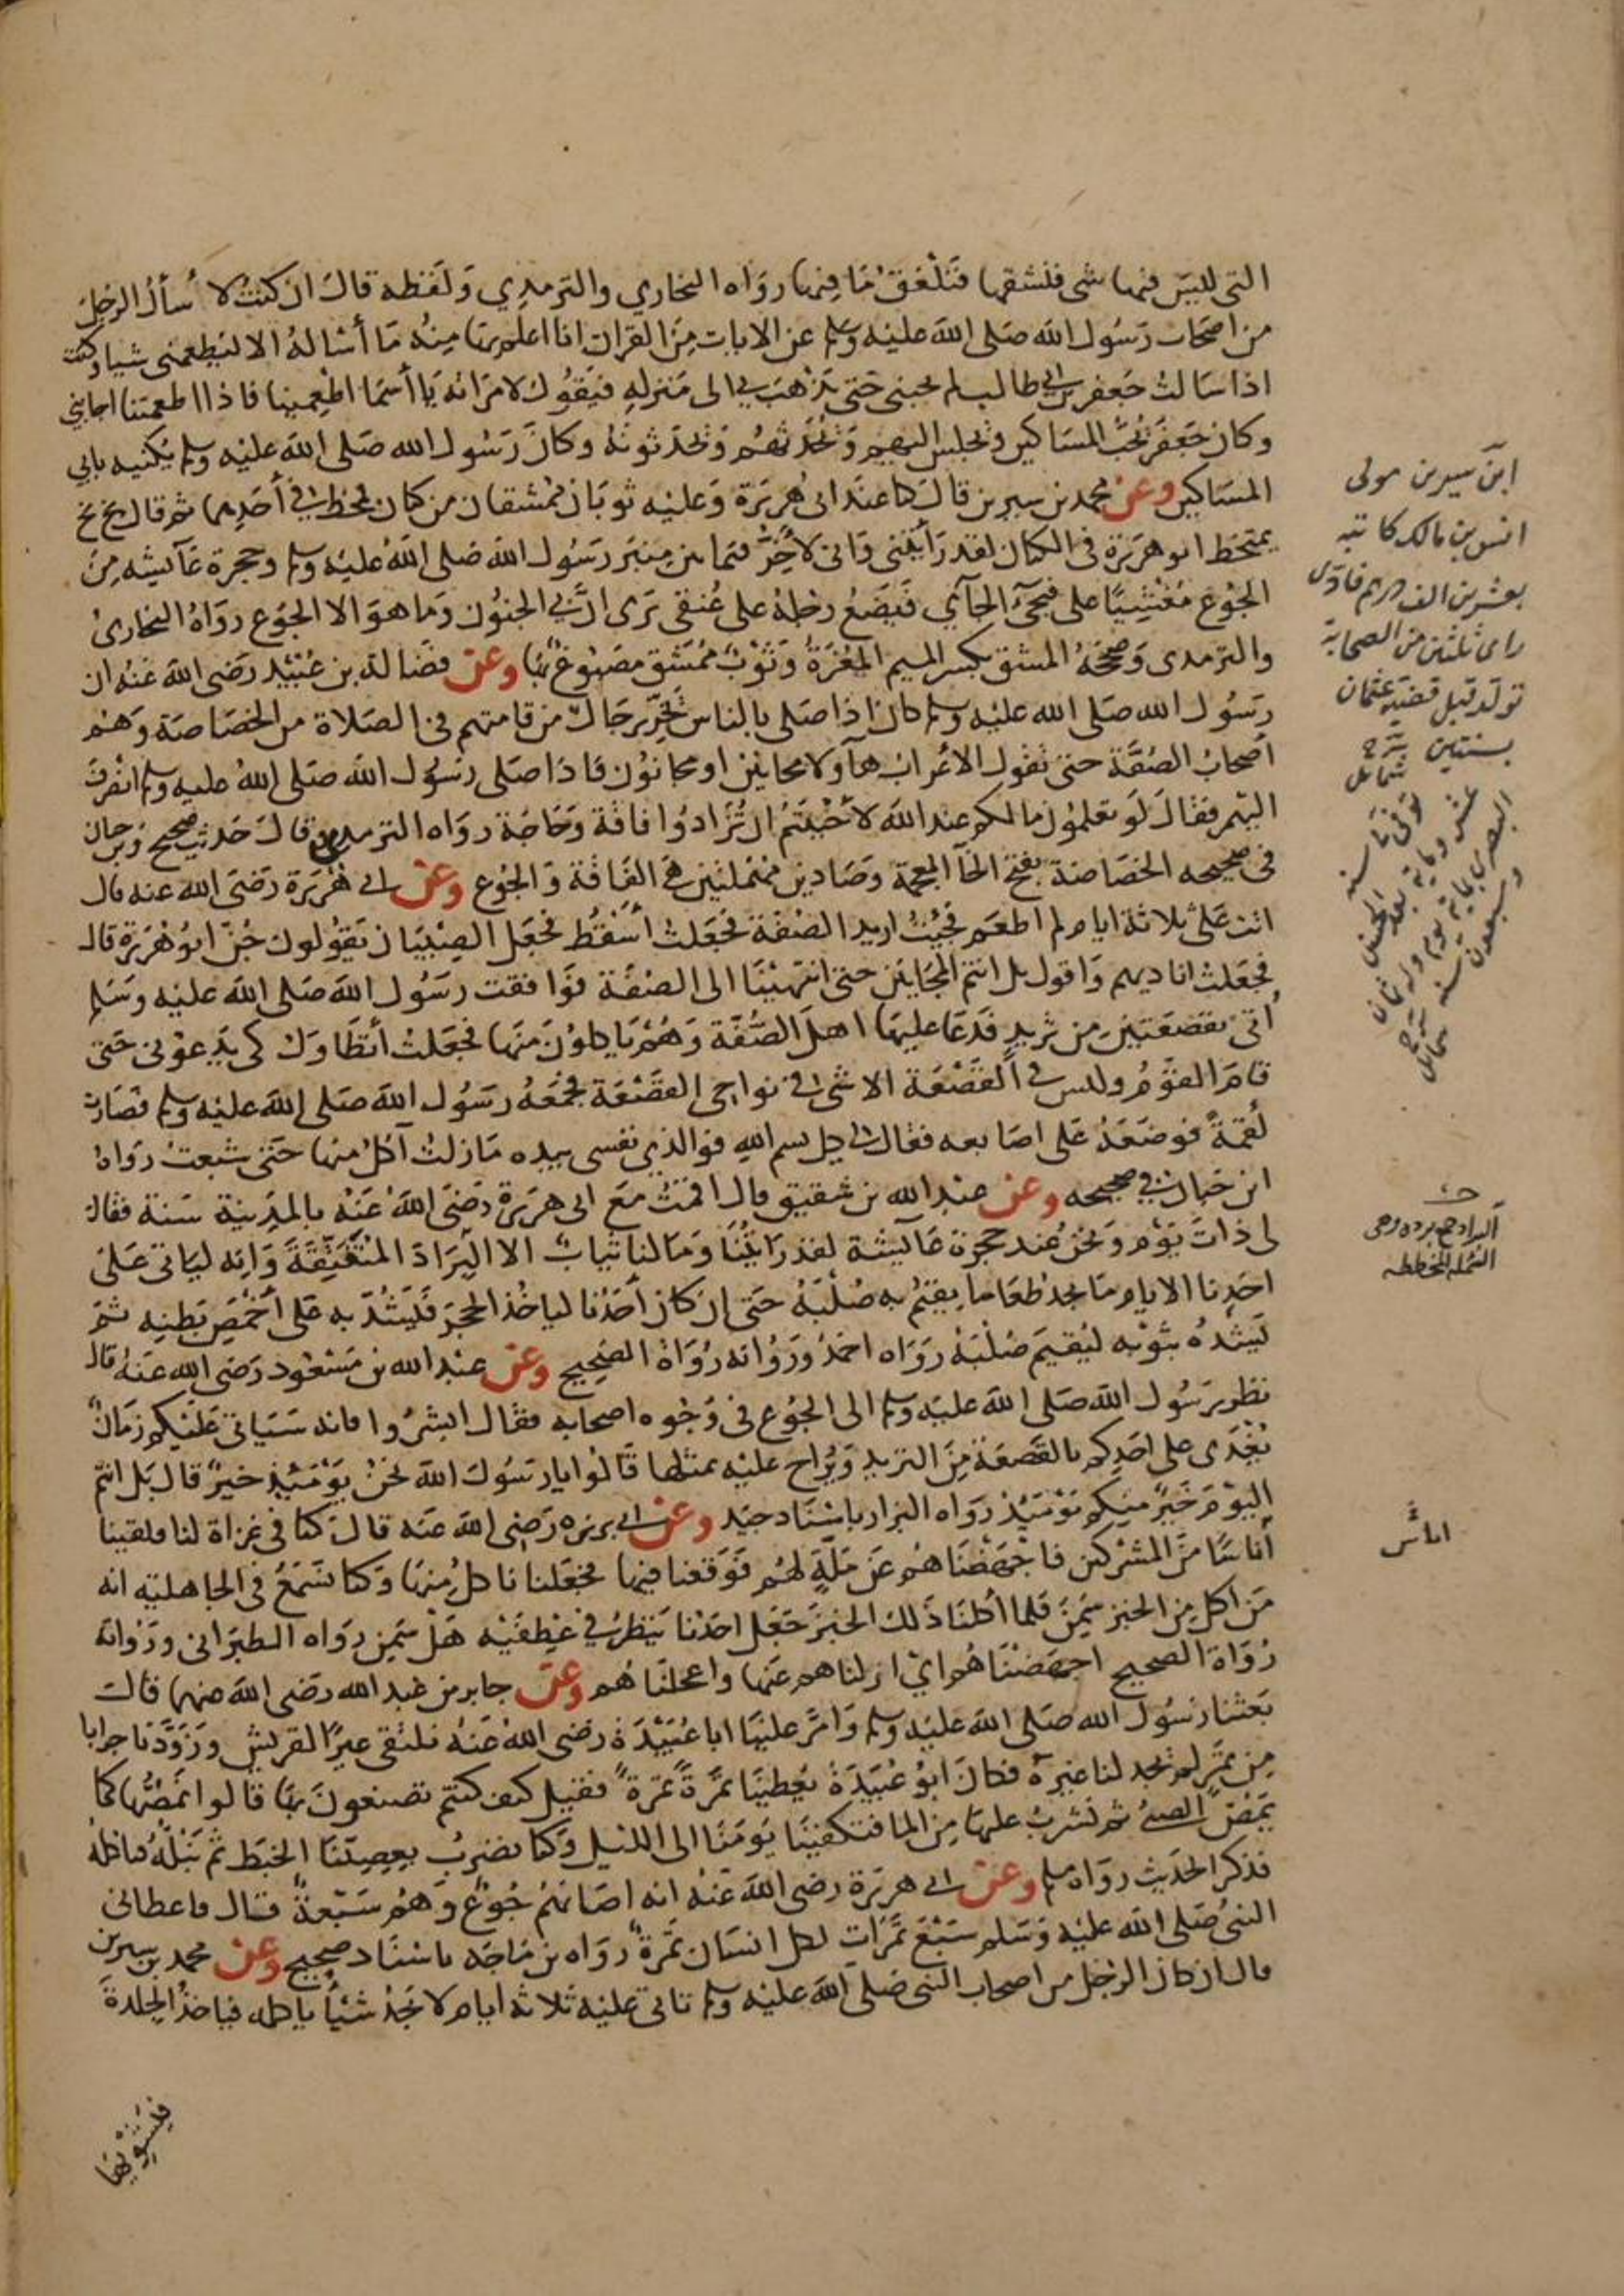 التى لليس فيها شى فنشقها فنلعق ما فيها رواه البخاري والترمدي ولفظه قال ان كنت لا سأل الرجل
من اصحاب رسول الله صلى الله عليه وسلم عن الايات من القران انا اعلم بها منه ما أساله الا ليطعمنى شيا وكنت
اذا سالت جعفر بن ابى طالب لم يجبنى حتى يذهب بي الى منزله فيقول لامراته يا أسما اطعمينا فاذا اطعمتنا اجابني
وكان جعفر يحب المساكين ويجلس اليهم ويحدثهم ويحدثونه وكان رسول الله صلى الله عليه وسلم يكنيه بابي
المساكين وعن محمد بن سيرين قال كنا عند ابى هريرة وعليه ثوبان ممشقان من كتان فمخط في أحدهما ثم قال بخ بخ
يمتخط ابو هريرة فى الكتان لقد رأيتنى وانى لأخر فيما بين منبر رسول الله صلى الله عليه وسلم وحجرة عآيشه من
الجوع مغشيا على فيجئ الجآي فيضع رجله على عنقى يرى ان بي الجنون وما هو الا الجوع رواه البخارى
والترمدى وصححه المشق بكسر الميم المغرة وثوب ممشق مصبوغ بها وعن فضالة بن عبيد رضى الله عنه ان
رسول الله صلى الله عليه وسلم كان اذا صلى بالناس يخر رجال من قامتهم فى الصلاة من الخصاصة وهم
أصحاب الصفة حتى تقول الاعراب هآولا مجانين او مجانون فاذا صلى رسول الله صلى الله عليه وسلم انصرف
اليهم فقال لو تعلمون مالكم عند الله لأحببتم ان تزادوا فاقة وحاجة رواه الترمدى وقال حديث صحيح وبن حبان
فى صحيحه الخصاصة بفتح الخآ المعجمة وصادين مهملتين هي الفاقة والجوع وعن ابى هريرة رضى الله عنه قال
اتت على ثلاثة ايام لم اطعم فجيت اريد الصفة فجعلت أسقط فجعل الصبيان يقولون جن ابو هريرة قال
فجعلت اناديهم واقول بل انتم المجانين حتى انتهينا الى الصفة فوافقت رسول الله صلى الله عليه وسلم
أتى بقصعتين من ثريد فدعا عليها اهل الصفة وهم ياكلون منها فجعلت أتطاول كى يدعونى حتى
قام القوم وليس في القصعة الا شى في نواحى القصعة فجمعه رسول الله صلى الله عليه وسلم فصارت
لقمة فوضعه على اصابعه فقال لى كل بسم الله فوالذى نفسى بيده مازلت آكل منها حتى شبعت رواه
ابن حبان في صحيحه وعن عبد الله بن شقيق قال اقمت مع ابى هريرة رضى الله عنه بالمدينة سنة فقال
لى ذات يوم ونحن عند حجرة عآيشة لقد رايتنا وما لنا ثياب الا البراد المتفتقة وانه ليأتى على
احدنا الايام ما يجد طعاما يقيم به صلبه حتى ان كان أحدنا لياخذ الحجر فيشد به على أخمص بطنه ثم
ليشده بثوبه ليقيم صلبه رواه احمد ورواته رواة الصحيح وعن عبد الله بن مسعود رضى الله عنه قال
نظر رسول الله صلى الله عليه وسلم الى الجوع فى وجوه اصحابه فقال ابشروا فانه سياتى عليكم زمان
يغدى على احدكم بالقصعة من الثريد ويراح عليه بمثلها قالوا يا رسول الله نحن يومئذ خير قال بل انتم
اليوم خير منكم يومئذ رواه البزار باسناد جيد وعن ابى برزه رضى الله عنه قال كنا فى غزاة لنا فلقينا
أناسا من المشركين فاجهضناهم عن ملة لهم فوقعنا فيها فجعلنا ناكل منها وكنا نسمع فى الجاهليه انه
من اكل من الخبز سمن فلما أكلنا ذلك الخبز جعل احدنا ينظر في عطفيه هل سمن رواه الطبرانى ورواته
رواة الصحيح اجهضناهم اي ازلناهم عنها واعجلناهم وعن جابر بن عبد الله رضى الله عنهما قال
بعثنا رسول الله صلى الله عليه وسلم وامر علينا ابا عبيدة رضى الله عنه نلتقى عيرا لقريش وزودنا جرابا
من تمر لم يجد لنا غيره فكان ابو عبيدة يعطينا تمرة تمرة فقيل كيف كنتم تصنعون بها قالوا نمصها كما
يمص الصبى ثم نشرب عليها من الما فتكفينا يومنا الى الليل وكنا نضرب بعصينا الخبط ثم نبله فناكله
فذكر الحديث رواه مسلم وعن ابى هريرة رضى الله عنه انه اصابهم جوع وهم سبعة قال فاعطانى
النبى صلى الله عليه وسلم سبع تمرات لكل انسان تمرة رواه بن ماجه باسناد صحيح وعن محمد بن سيرين
قال ان كان الرجل من اصحاب النبى صلى الله عليه وسلم تاتى عليه ثلاثة ايام لا يجد شيأ ياكله فياخذ الجلدة
فيشويها
ابن سيرين مولى
انس بن مالك كاتبه
بعشرين الف درهم فادى
راى ثلثين من الصحابة
تولد قبل قضية عثمان
بسنتين شرح
شمائل
توفى سنة
عشر وماية بعد الحسن
البصرى بماية يوم وله ثمان
وسبعون سنة شرح
شمائل
البراد جمع برده وهى
الشمله المخططه
اناس